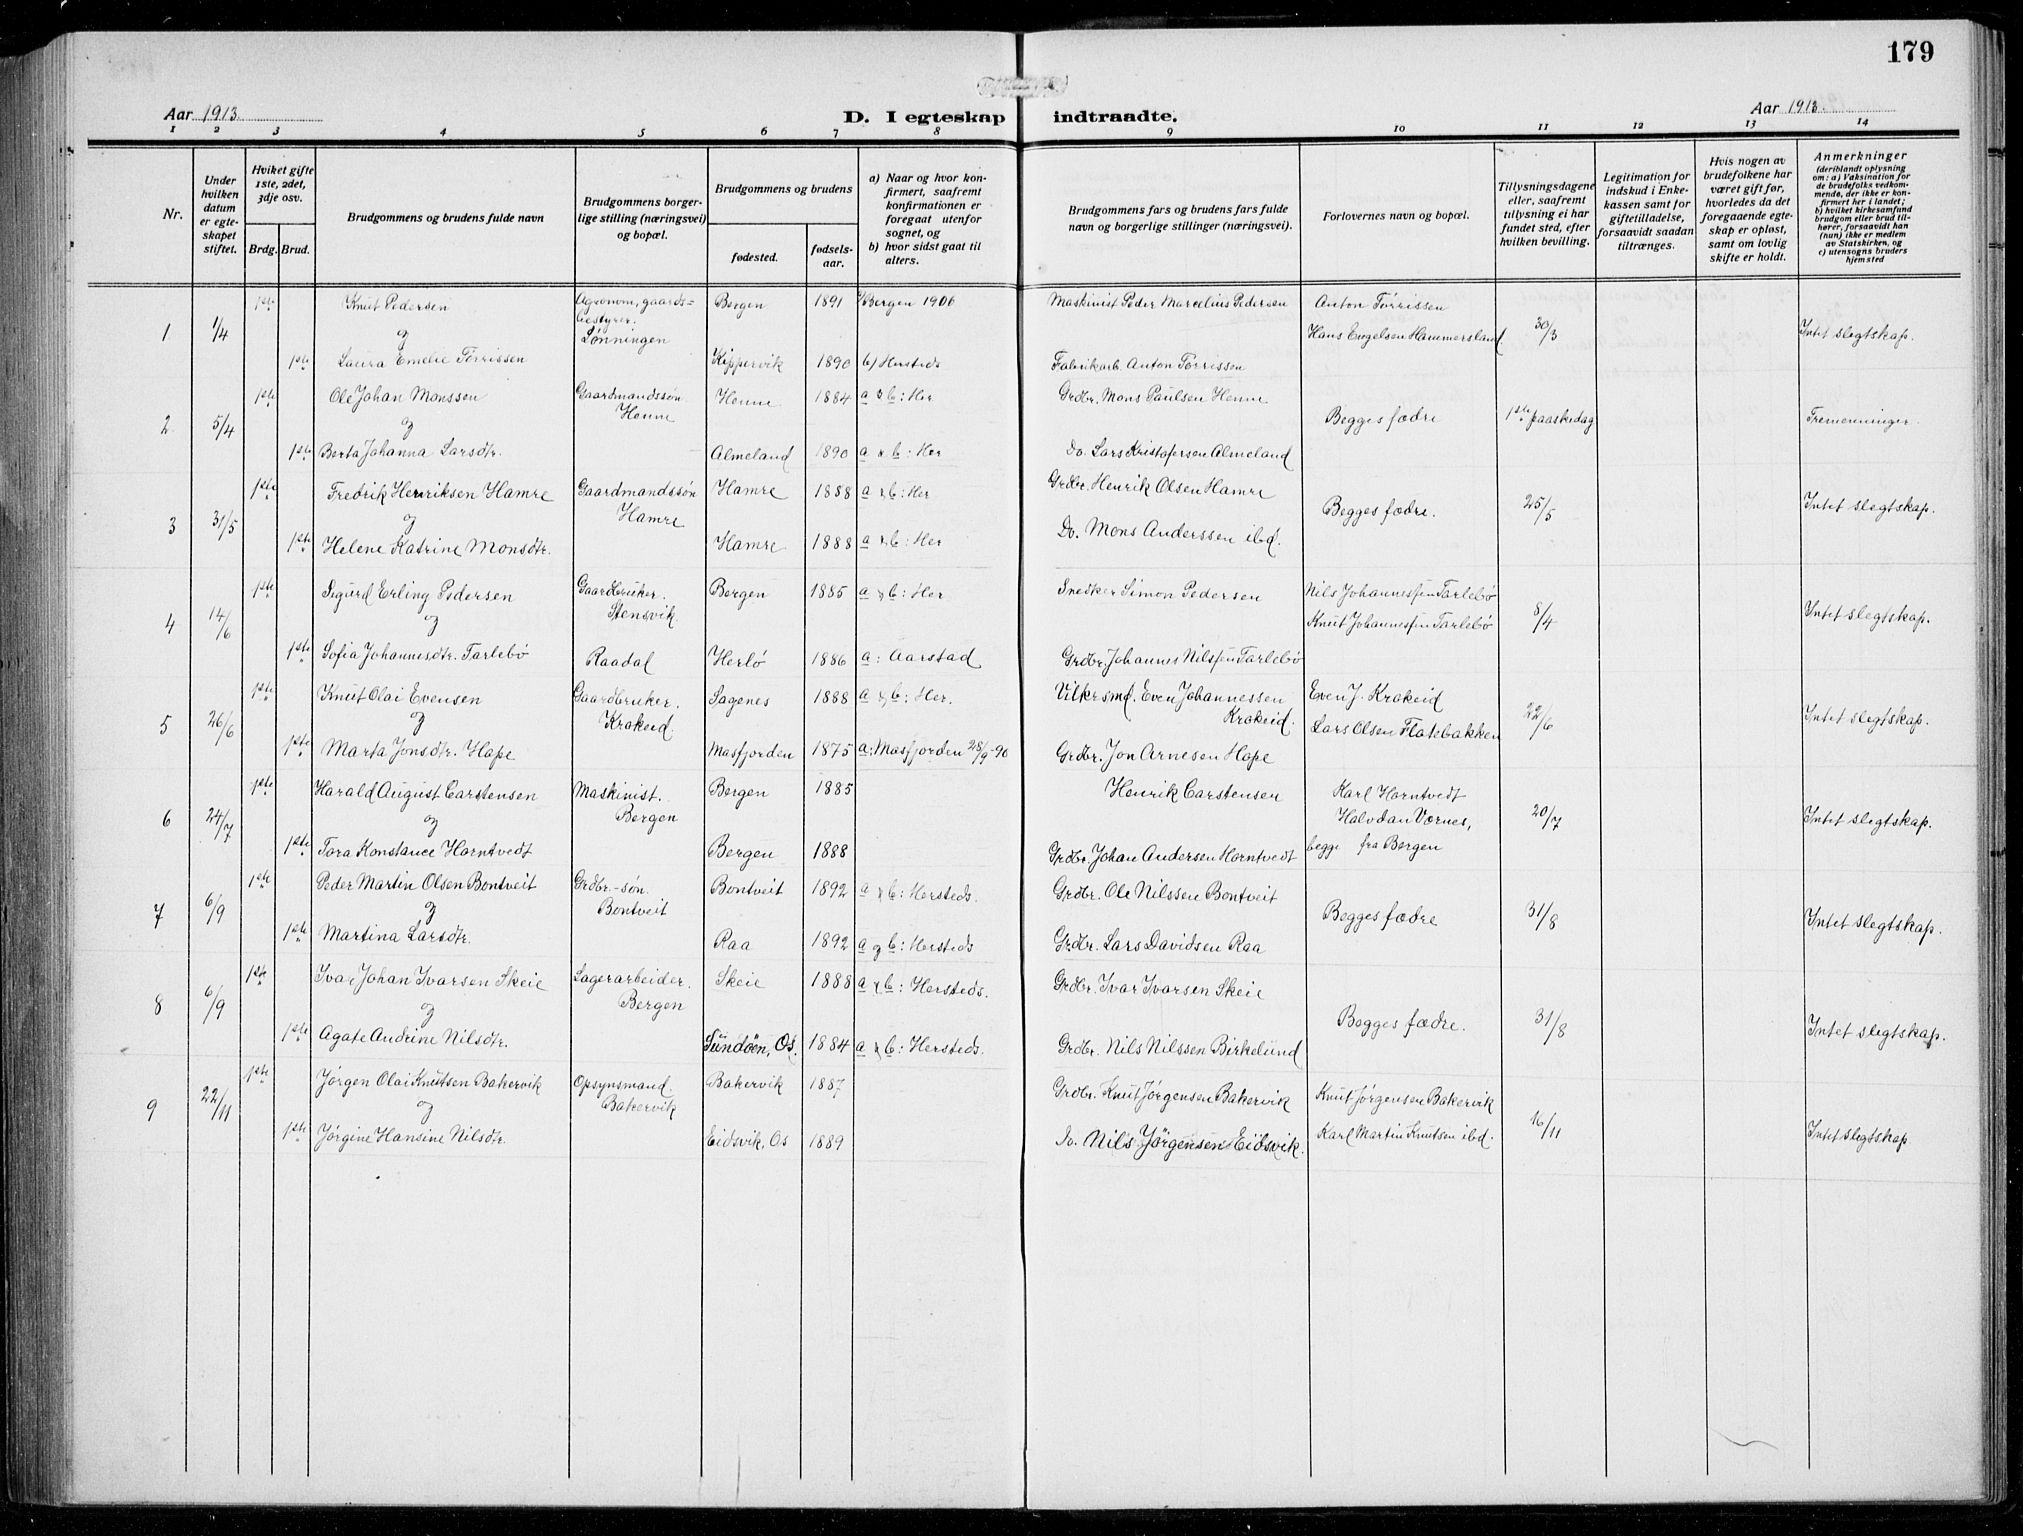 179
Aar 1913.
D. I egteskap indtraadte.
Aar 1913.
1 2 3 4 5 6 7 8 9 10 11 12 13 14
Nr.
Under hvilken datum er egteskapet stiftet.
Hviket gifte 1ste, 2det, 3dje osv.
Brdg. Brud.
Brudgommens og brudens fulde navn
Brudgommens borgerlige stilling (næringsvei) og bopæl.
Brudgommens og brudens
fødested.
fødselsaar.
a) Naar og hvor konfirmert, saafremt konfirmationen er foregaat utenfor sognet, og
b) hvor sidst gaat til alters.
Brudgommens fars og brudens fars fulde navn og borgerlige stillinger (næringsvei).
Forlovernes navn og bopæl.
Tillysningsdagene eller, saafremt tillysning ei har fundet sted, efter hvilken bevilling.
Legitimation for indskud i Enkekassen samt for giftetilladelse, forsaavidt saadan tiltrænges.
Hvis nogen av brudefolkene har været gift før, hvorledes da det foregaaende egteskap er opløst, samt om lovlig skifte er holdt.
Anmerkninger (deriblandt oplysning om: a) Vaksination for de brudefolks vedkommende, der ikke er konfirmert her i landet; b) hvilket kirkesamfund brudgom eller brud tilhører, forsaavidt han (hun) ikke er medlem av Statskirken, og c) utensogns bruders hjemsted
1ste Knut Pedersen Agronom, gaards= Bergen 1891 a/ Bergen 1906 Maskinist Peder Marcelius Pedersen Anton Tørrissen
bestyrer.
1 1/4 og Lønningen Hans Engelsen Hammersland 30/3 Intet slegtskap.
1ste Laura Emelie Tørrissen Kippervik 1890 b/ Hersteds Fabrikarb. Anton Tørrissen
1ste Ole Johan Monssen Gaardmandssøn Henne 1884 a & b: Her Grdbr. Mons Paulsen Henne
Henne
2 5/4 og Begges fædre 1ste paaskedag Tremenninger.
1ste Berta Johanna Larsdtr. Almeland 1890 a & b: Her Do. Lars Kristofersen Almeland
1ste Fredrik Henriksen Hamre Gaardmandssøn Hamre 1888 a & b: Her Grdbr. Henrik Olsen Hamre
Hamre
3 31/5 og Begges fædre. 25/5 Intet slegtskap.
1ste Helene Katrine Monsdtr. Hamre 1888 a & b: Her Do. Mons Anderssen ibd.
1ste Sigurd Erling Pedersen Gaardbruker. Bergen 1885 a & b: Her Snedker Simon Pedersen Nils Johannessen Tarlebø
Stensvik.
4 14/6 og Knut Johannessen Tarlebø 8/4 Intet slegtskap.
1ste Sofia Johannesdtr. Tarlebø Raadal Herlø 1886 a: Aarstad Grdbr. Johannes Nilssen Tarlebø
1ste Knut Olai Evensen Gaardbruker. Sagenes 1888 a & b: Her. Vilkrsmd. Even Johannessen Even J. Krakeid
Krakeid. Krakeid.
5 26/6 og Lars Olsen Flatebakken 22/6 Intet slegtskap.
1ste Marta Jonsdtr. Hope Masfjorden 1875 a: Masfjorden 28/9-90 Grdbr. Jon Arnesen Hope
1ste Harald August Carstensen Maskinist. Bergen 1885 Henrik Carstensen Karl Horntvedt
Bergen Halvdan Værnes,
6 24/7 og 20/7 Intet slegtskap.
1ste Tora Konstance Horntvedt Bergen 1888 Grdbr. Johan Andersen Horntvedt begge fra Bergen
1ste Peder Martin Olsen Bontveit Grdbr.-søn. Bontveit 1892 a & b: Hersteds. Grdbr. Ole Nilssen Bontveit
Bontveit
7 6/9 og Begges fædre 31/8 Intet slegtskap.
1ste Martina Larsdtr. Raa 1892 a og b: Hersteds Grdbr. Lars Davidsen Raa
1ste Ivar Johan Ivarsen Skeie Lagerarbeider. Skeie 1888 a & b: Hersteds. Grdbr. Ivar Ivarsen Skeie
Bergen
8 6/9 og Begges fædre. 31/8 Intet slegtskap.
1ste Agate Andrine Nilsdtr. Sundøen, Os. 1884 a & b: Hersteds. Grdbr. Nils Nilssen Birkelund
1ste Jørgen Olai Knutsen Bakervik Opsynsmand. Bakervik 1887 Grdbr. Knut Jørgensen Bakervik Knut Jørgensen Bakervik
Bakervik
9 22/11 og 16/11 Intet slegtskap
1ste Jørgine Hansine Nilsdtr. Eidsvik, Os 1889 Do. Nils Jörgensen Eidsvik. Karl Martin Knutsen ibd.